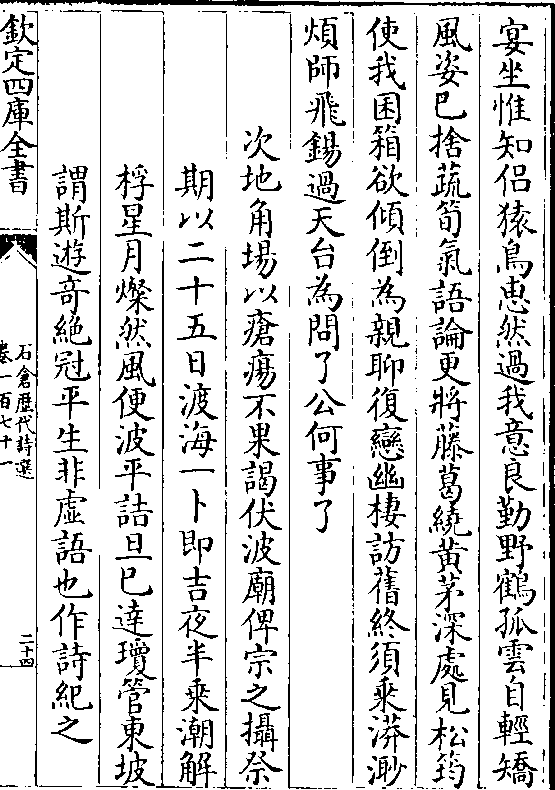 宴坐惟知侣猿鳥恵然過我意良勤野鶴孤雲自輕矯
風姿已捨蔬筍氣語論更將藤葛繞黄茅深處見松筠
使我囷箱欲傾倒為親聊復戀幽棲訪舊終須乘漭渺
煩師飛錫過天台為問了公何事了
次地角場以瘡瘍不果謁伏波廟俾宗之攝祭
期以二十五日渡海一卜即吉夜半乘潮解
桴星月燦然風便波平詰旦已逹瓊管東坡
謂斯遊竒絶冠平生非虚語也作詩紀之
欽定四庫全書
石倉歴代詩選
卷一百七十一
二十四